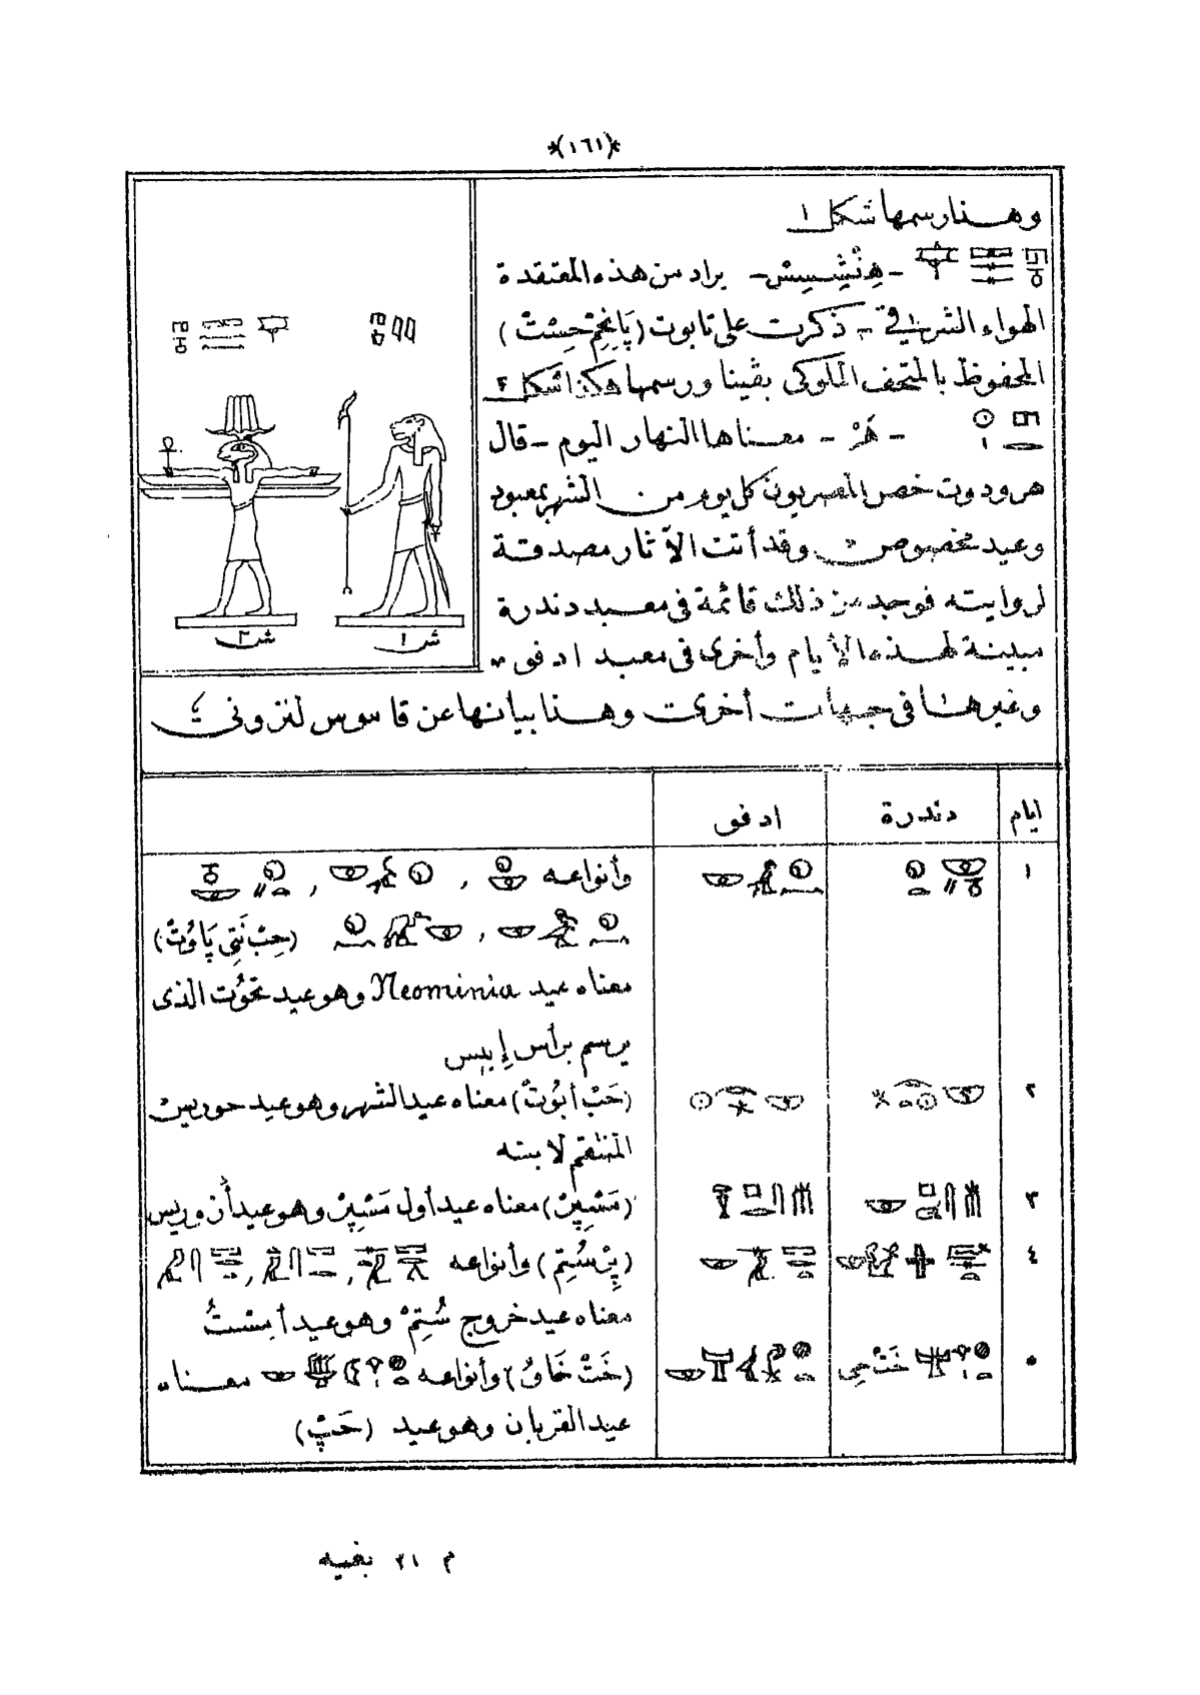 *(١٦١)*
وهنا رسمها شكل ١
- هِنْشِسِسْ - يراد من هذه المعتقدة
الهواء الشرقي - ذكرت على تابوت (پَانِحِمْ حِسْتْ)
المحفوظ بالمتحف الملوكى بڤينا ورسمها هكذا شكل ٢
- هَرْ - معناها النهار اليوم - قال
هرودوت خص المصريون كل يوم من الشهر بمعبود
وعيد مخصوص وقد أتت الآثار مصدقة
لروايته فوجد من ذلك قائمة فى معبد دندرة
مبينة لهذه الأيام وأخرى فى معبد ادفو
وغيرها فى جهات أخرى وهنا بيانها عن قاموس لنزونى
ش ١
ش ٢
ايام دندرة ادفو
١ وأنواعه , ,
, (حِبْ نَتِى پَاوُتْ)
معناه عيد Neominia وهو عيد تحوُت الذى
يرسم برأس إبيس
٢ (حَبْ أبُوتْ) معناه عيد الشهر وهو عيد حوريس
المنتقم لابيه
٣ (مَسْپِرْ) معناه عيد أول مَسْپِرْ وهو عيد أزوريس
٤ (پِرْسُتِمْ) وأنواعه , ,
معناه عيد خروج سُتِمْ وهو عيد أمسْتُ
٥ (خَتْ خَاوُ) وأنواعه معناه
عيد القربان وهو عيد (حَپْ)
م ٢١ بغيه